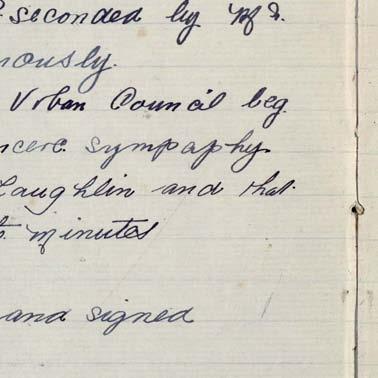 seconded by Mr.
ously.
Urban Council beg
ncere sympaphy.
Laughlin and that
minutes
and signed